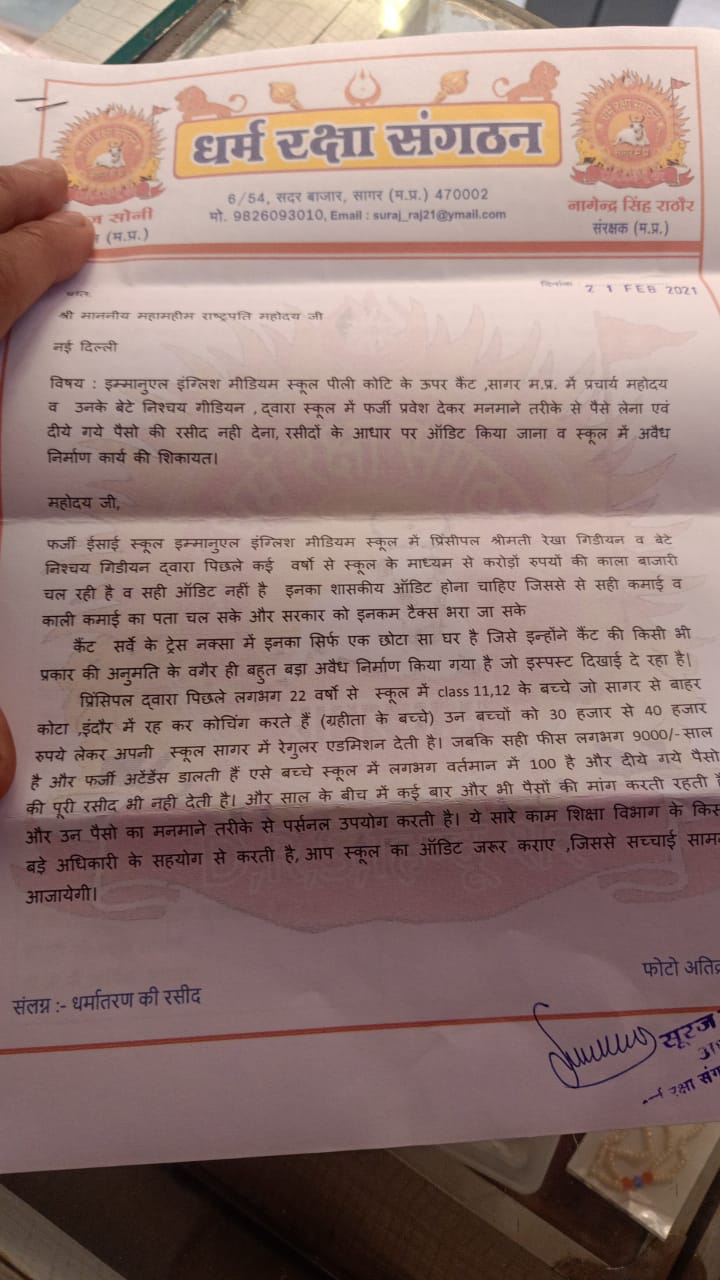 धर्म रक्षा संगठन
6/54, सदर बाजार, सागर (म.प्र.) 470002
मो. 9826093010, Email : suraj_raj21@ymail.com
सोनी
(म.प्र.)
नागेन्द्र सिंह राठौर
संरक्षक (म.प्र.)
दिनांक 21 FEB 2021
प्रति,
श्री माननीय महामहीम राष्ट्रपति महोदय जी
नई दिल्ली
विषय : इम्मानुएल इंग्लिश मीडियम स्कूल पीली कोटि के ऊपर कैंट ,सागर म.प्र. में प्रचार्य महोदय
व उनके बेटे निश्चय गीडियन ,द्वारा स्कूल में फर्जी प्रवेश देकर मनमाने तरीके से पैसे लेना एवं
दीये गये पैसो की रसीद नही देना, रसीदों के आधार पर ऑडिट किया जाना व स्कूल में अवैध
निर्माण कार्य की शिकायत।
महोदय जी,
फर्जी ईसाई स्कूल इम्मानुएल इंग्लिश मीडियम स्कूल में प्रिंसीपल श्रीमती रेखा गिडीयन व बेटे
निश्चय गिडीयन द्वारा पिछले कई वर्षो से स्कूल के माध्यम से करोड़ों रुपयों की काला बाजारी
चल रही है व सही ऑडिट नहीं है इनका शासकीय ऑडिट होना चाहिए जिससे से सही कमाई व
काली कमाई का पता चल सके और सरकार को इनकम टैक्स भरा जा सके
कैंट सर्वे के ट्रेस नक्सा में इनका सिर्फ एक छोटा सा घर है जिसे इन्होंने कैंट की किसी भी
प्रकार की अनुमति के वगैर ही बहुत बड़ा अवैध निर्माण किया गया है जो इस्पस्ट दिखाई दे रहा है।
प्रिंसिपल द्वारा पिछले लगभग 22 वर्षो से स्कूल में class 11,12 के बच्चे जो सागर से बाहर
कोटा ,इंदौर में रह कर कोचिंग करते हैं (ग्रहीता के बच्चे) उन बच्चों को 30 हजार से 40 हजार
रुपये लेकर अपनी स्कूल सागर में रेगुलर एडमिशन देती है। जबकि सही फीस लगभग 9000/- साल
है और फर्जी अटेंडेंस डालती हैं एसे बच्चे स्कूल में लगभग वर्तमान में 100 है और दीये गये पैसो
की पूरी रसीद भी नही देती है। और साल के बीच में कई बार और भी पैसों की मांग करती रहती
और उन पैसो का मनमाने तरीके से पर्सनल उपयोग करती है। ये सारे काम शिक्षा विभाग के
बड़े अधिकारी के सहयोग से करती है, आप स्कूल का ऑडिट जरूर कराए ,जिससे सच्चाई
आजायेगी।
फोटो
संलग्न :- धर्मातरण की रसीद
सूरज
रक्षा